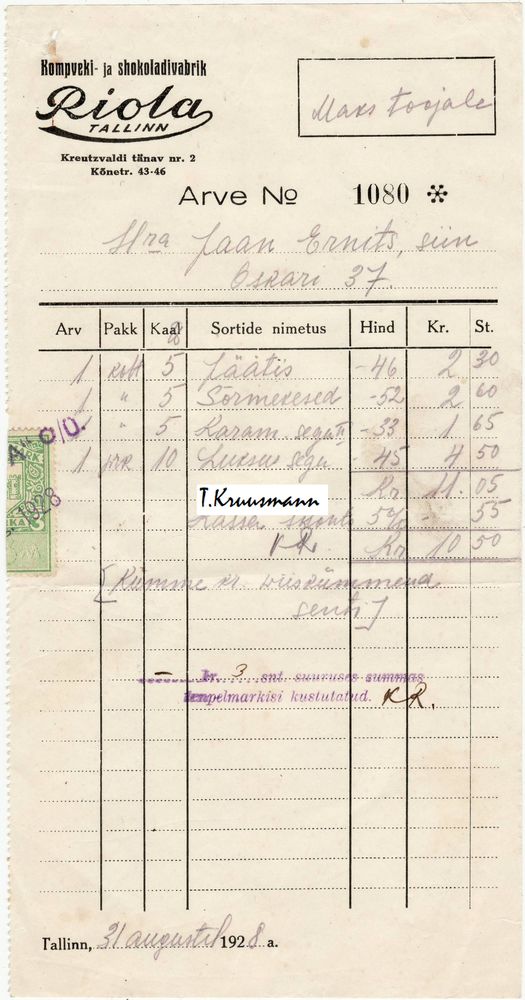 Kompveki- ja shokoladivabrik
Riola
TALLINN
Kreutzvaldi tänav nr. 2
Kõnetr. 43-46
Maks toojale
Arve № 1080
Hra Jaan Ernits, siin
Oskari 37.
Arv Pakk Kaal Sortide nimetus Hind Kr. St.
1 kott 5 Jäätis -46 2 30
1 " 5 Sõrmekesed -52 2 60
1 " 5 Karam. segu II -33 1 65
1 prk 10 Luksu segu 45 4 50
Kr 11.05
T.Kruusmann
Kassa skonto 5% - 55
KR. Kr 10 50
[Kümme kr. wiiskümmend
senti]
A/ü. O/Ü.
1928
– kr. 3 snt. suuruses summas
tempelmarkisi kustutatud. KR.
Tallinn, 31 augustil 1928 a.